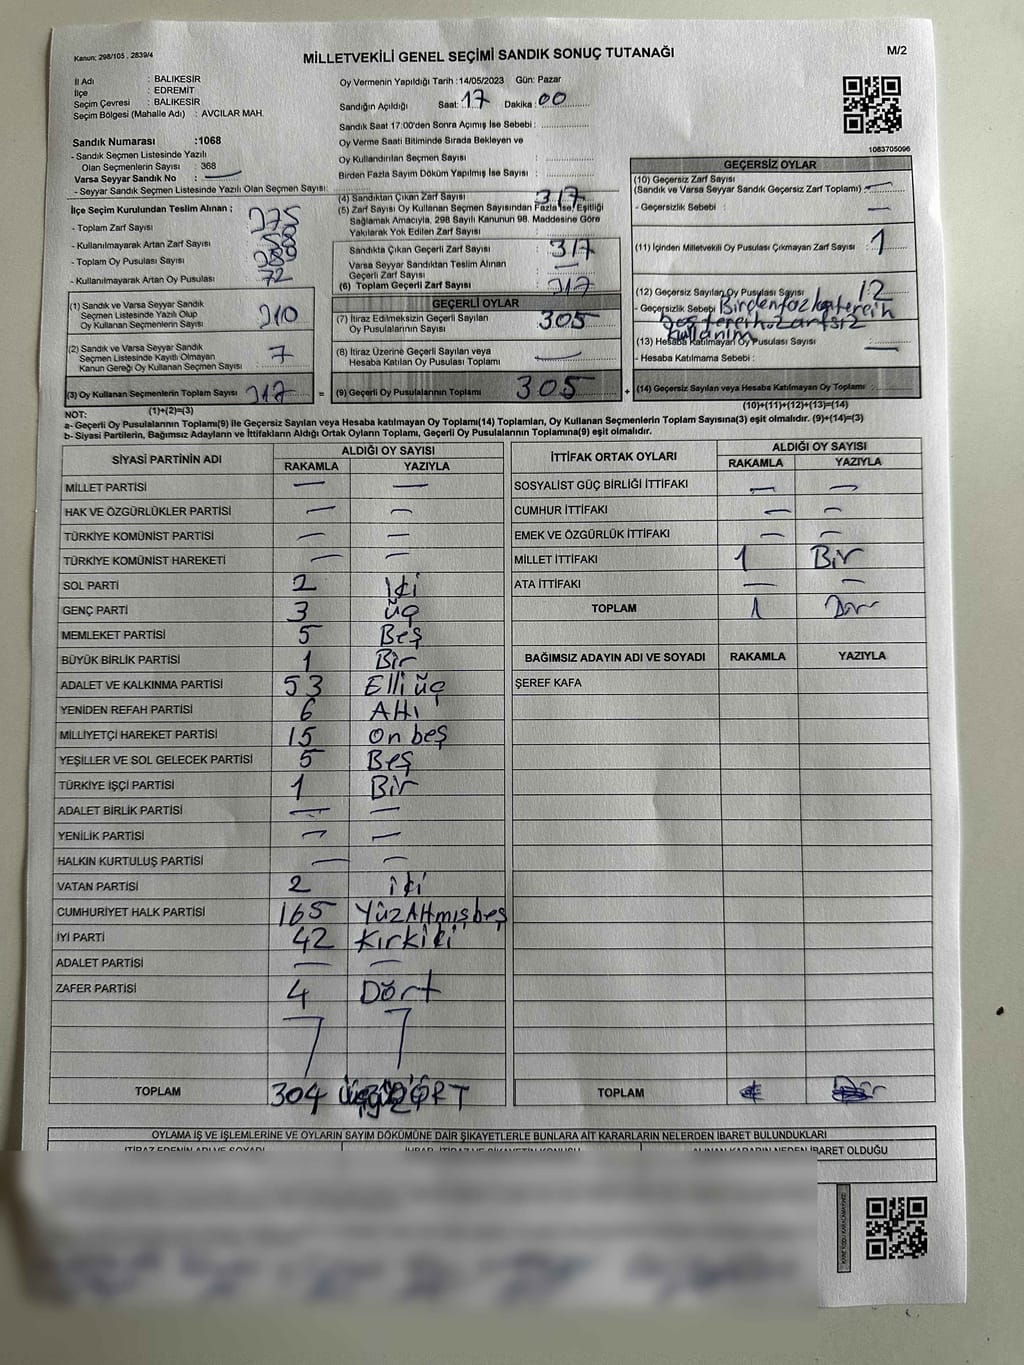 Kanun: 298/105 , 2839/4
MİLLETVEKİLİ GENEL SEÇİMİ SANDIK SONUÇ TUTANAĞI
M/2
İl Adı : BALIKESİR
İlçe : EDREMİT
Seçim Çevresi : BALIKESİR
Seçim Bölgesi (Mahalle Adı) : AVCILAR MAH.
Oy Vermenin Yapıldığı Tarih :14/05/2023 Gün: Pazar
Sandığın Açıldığı Saat: 17 Dakika : 00
Sandık Saat 17:00'den Sonra Açımış İse Sebebi :
Oy Verme Saati Bitiminde Sırada Bekleyen ve
Oy Kullandırılan Seçmen Sayısı :
Birden Fazla Sayım Döküm Yapılmış İse Sayısı :
1083705096
Sandık Numarası :1068
- Sandık Seçmen Listesinde Yazılı
Olan Seçmenlerin Sayısı : 368
Varsa Seyyar Sandık No : —
- Seyyar Sandık Seçmen Listesinde Yazılı Olan Seçmen Sayısı:
İlçe Seçim Kurulundan Teslim Alınan ;
- Toplam Zarf Sayısı :
- Kullanılmayarak Artan Zarf Sayısı :
- Toplam Oy Pusulası Sayısı :
- Kullanılmayarak Artan Oy Pusulası : 72
(1) Sandık ve Varsa Seyyar Sandık
Seçmen Listesinde Yazılı Olup
Oy Kullanan Seçmenlerin Sayısı : 310
(2) Sandık ve Varsa Seyyar Sandık
Seçmen Listesinde Kayıtlı Olmayan
Kanun Gereği Oy Kullanan Seçmen Sayısı : 7
(3) Oy Kullanan Seçmenlerin Toplam Sayısı : 317
(1)+(2)=(3)
(4) Sandıktan Çıkan Zarf Sayısı : 317
(5) Zarf Sayısı Oy Kullanan Seçmen Sayısından Fazla İse, Eşitliği
Sağlamak Amacıyla, 298 Sayılı Kanunun 98. Maddesine Göre
Yakılarak Yok Edilen Zarf Sayısı :
Sandıkta Çıkan Geçerli Zarf Sayısı : 317
Varsa Seyyar Sandıktan Teslim Alınan
Geçerli Zarf Sayısı : —
(6) Toplam Geçerli Zarf Sayısı : 317
GEÇERLİ OYLAR
(7) İtiraz Edilmeksizin Geçerli Sayılan
Oy Pusulalarının Sayısı : 305
(8) İtiraz Üzerine Geçerli Sayılan veya
Hesaba Katılan Oy Pusulası Toplamı : —
= (9) Geçerli Oy Pusulalarının Toplamı : 305 +
GEÇERSİZ OYLAR
(10) Geçersiz Zarf Sayısı
(Sandık ve Varsa Seyyar Sandık Geçersiz Zarf Toplamı) : —
- Geçersizlik Sebebi : —
(11) İçinden Milletvekili Oy Pusulası Çıkmayan Zarf Sayısı : 1
(12) Geçersiz Sayılan Oy Pusulası Sayısı : 12
- Geçersizlik Sebebi : Birden fazla tercih
boş tercih zarfsız
kullanım
(13) Hesaba Katılmayan Oy Pusulası Sayısı : —
- Hesaba Katılmama Sebebi :
(14) Geçersiz Sayılan veya Hesaba Katılmayan Oy Toplamı :
(10)+(11)+(12)+(13)=(14)
NOT:
a- Geçerli Oy Pusulalarının Toplamı(9) ile Geçersiz Sayılan veya Hesaba katılmayan Oy Toplamı(14) Toplamları, Oy Kullanan Seçmenlerin Toplam Sayısına(3) eşit olmalıdır. (9)+(14)=(3)
b- Siyasi Partilerin, Bağımsız Adayların ve İttifakların Aldığı Ortak Oyların Toplamı, Geçerli Oy Pusulalarının Toplamına(9) eşit olmalıdır.
SİYASİ PARTİNİN ADI ALDIĞI OY SAYISI
RAKAMLA YAZIYLA
MİLLET PARTİSİ — —
HAK VE ÖZGÜRLÜKLER PARTİSİ — —
TÜRKİYE KOMÜNİST PARTİSİ — —
TÜRKİYE KOMÜNİST HAREKETİ — —
SOL PARTİ 2 İki
GENÇ PARTİ 3 üç
MEMLEKET PARTİSİ 5 Beş
BÜYÜK BİRLİK PARTİSİ 1 Bir
ADALET VE KALKINMA PARTİSİ 53 Elli üç
YENİDEN REFAH PARTİSİ 6 Altı
MİLLİYETÇİ HAREKET PARTİSİ 15 on beş
YEŞİLLER VE SOL GELECEK PARTİSİ 5 Beş
TÜRKİYE İŞÇİ PARTİSİ 1 Bir
ADALET BİRLİK PARTİSİ — —
YENİLİK PARTİSİ — —
HALKIN KURTULUŞ PARTİSİ — —
VATAN PARTİSİ 2 iki
CUMHURİYET HALK PARTİSİ 165 YüzAltmışbeş
İYİ PARTİ 42 Kırkiki
ADALET PARTİSİ — —
ZAFER PARTİSİ 4 Dört
TOPLAM 304
İTTİFAK ORTAK OYLARI ALDIĞI OY SAYISI
RAKAMLA YAZIYLA
SOSYALİST GÜÇ BİRLİĞİ İTTİFAKI — —
CUMHUR İTTİFAKI — —
EMEK VE ÖZGÜRLÜK İTTİFAKI — —
MİLLET İTTİFAKI 1 Bir
ATA İTTİFAKI — —
TOPLAM 1 Bir
BAĞIMSIZ ADAYIN ADI VE SOYADI RAKAMLA YAZIYLA
ŞEREF KAFA
TOPLAM
OYLAMA İŞ VE İŞLEMLERİNE VE OYLARIN SAYIM DÖKÜMÜNE DAİR ŞİKAYETLERLE BUNLARA AİT KARARLARIN NELERDEN İBARET BULUNDUKLARI
İTİRAZ EDENİN ADI VE SOYADI İHBAR, İTİRAZ VE ŞİKAYETİN KONUSU ALINAN KARARIN NEDEN İBARET OLDUĞU